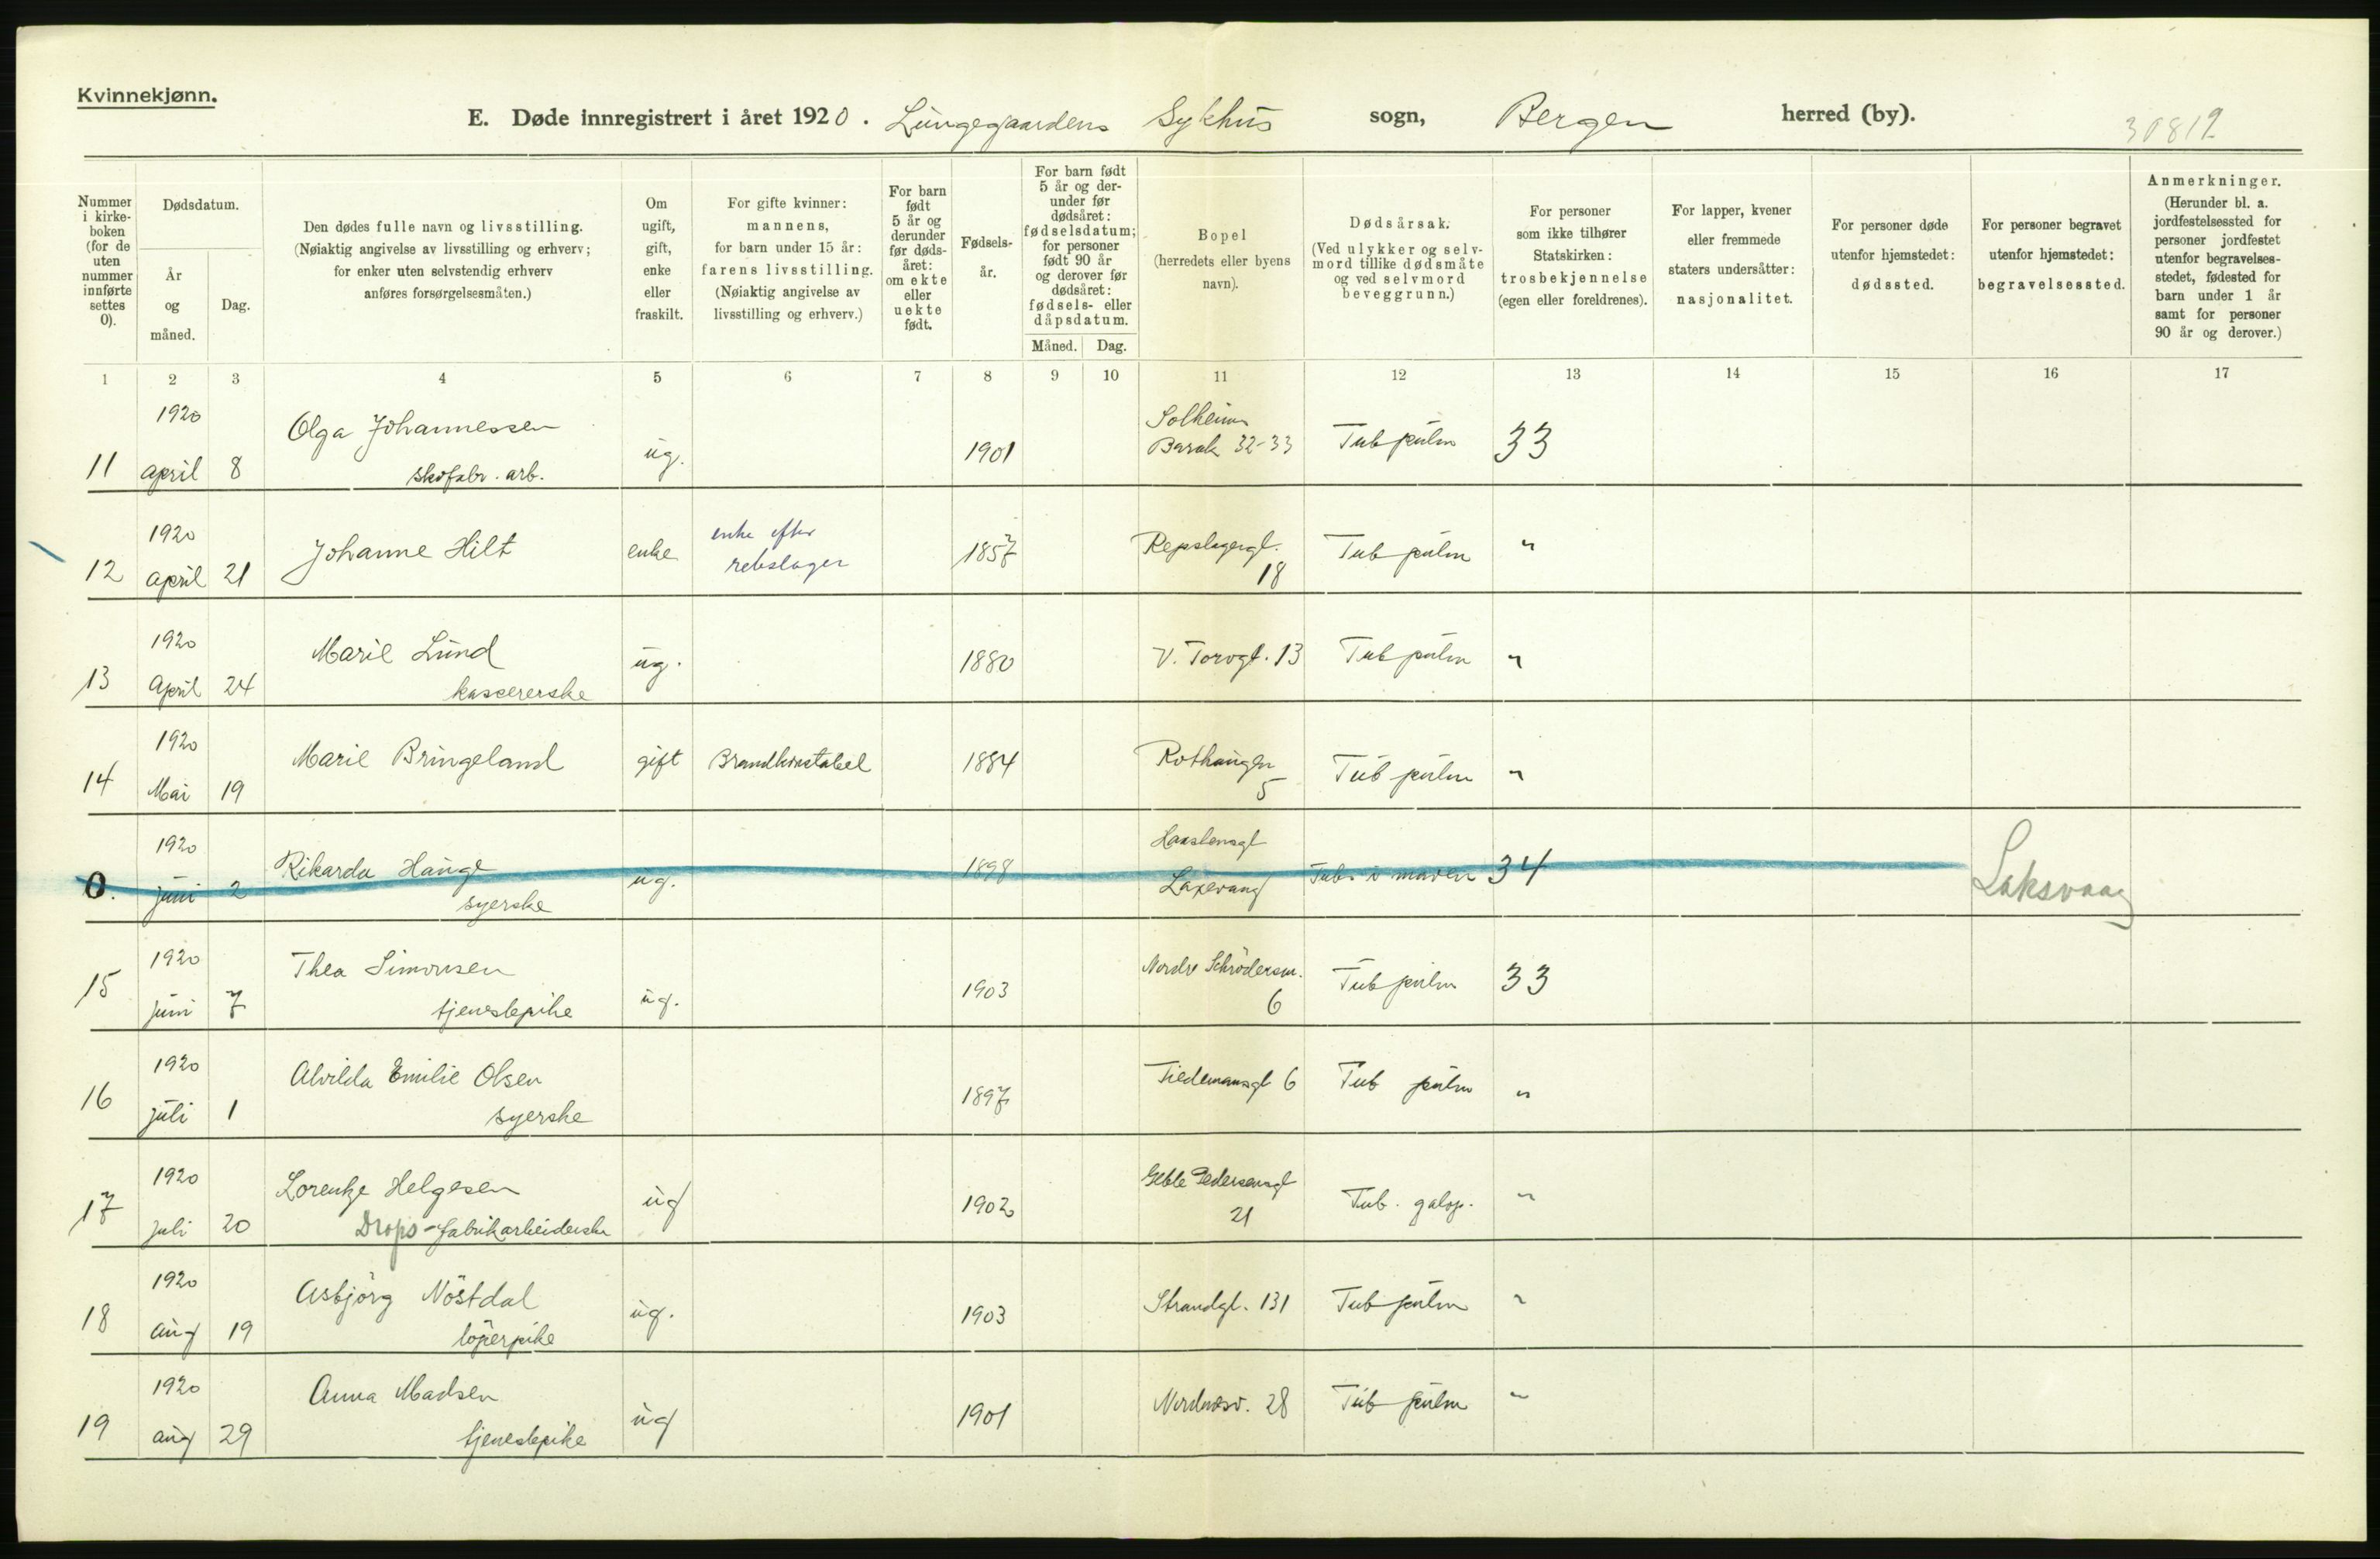 Kvinnekjønn.
E. Døde innregistrert i året 1920. Lungegaardens Sykhus sogn, Bergen herred (by).
30812
Nummer i kirke-boken (for de uten nummer innførte settes 0).
Dødsdatum.
År og måned.
Dag.
Den dødes fulle navn og livsstilling.
(Nøiaktig angivelse av livsstilling og erhverv;
for enker uten selvstendig erhverv
anføres forsørgelsesmåten.)
Om ugift, gift, enke eller fraskilt.
For gifte kvinner:
mannens,
for barn under 15 år:
farens livsstilling.
(Nøiaktig angivelse av
livsstilling og erhverv.)
For barn født 5 år og derunder før døds-året: om ekte eller uekte født.
Fødsels-år.
For barn født 5 år og der-under før dødsåret: fødselsdatum; for personer født 90 år og derover før dødsåret: fødsels- eller dåpsdatum.
Måned. Dag.
Bopel
(herredets eller byens
navn).
Dødsårsak.
(Ved ulykker og selv-
mord tillike dødsmåte
og ved selvmord
beveggrunn.)
For personer
som ikke tilhører
Statskirken:
trosbekjennelse
(egen eller foreldrenes).
For lapper, kvener
eller fremmede
staters undersåtter:
nasjonalitet.
For personer døde
utenfor hjemstedet:
dødssted.
For personer begravet
utenfor hjemstedet:
begravelsessted.
Anmerkninger.
(Herunder bl. a.
jordfestelsessted for
personer jordfestet
utenfor begravelses-
stedet, fødested for
barn under 1 år
samt for personer
90 år og derover.)
1 2 3 4 5 6 7 8 9 10 11 12 13 14 15 16 17
1920 Olga Johannessen Solheim
11 april 8 skofabr. arb. ug. 1901 Barak 32-33 Tub pulm 33
1920 enke efter
12 april 21 Johanne Hilt enke rebslager 1857 Repslagergt. 18 Tub pulm "
1920 Marie Lund ug. 1880 V. Torvgt. 13 Tub pulm "
13 April 24 kassererske
1920 Marie Bringeland gift Brandkonstabel 1884 Rothaugen 5 Tub pulm "
14 Mai 19
1920 Rikarda Hauge
0. juni 2 syerske ug. 1898 Laxevaag Tub. i maven 34 Laksvaag
1920 Thea Simonsen Nordre Schrödersm.
15 juni 7 tjenestepike ug. 1903 6 Tub pulm 33
1920 Alvilda Emilie Olsen Tiedemansgt 6 Tub pulm "
16 juli 1 syerske 1897
1920 Lorentze Helgesen ug 1902 Geble Pedersensgt
17 juli 20 Drops-fabrikarbeiderske 21 Tub. galop. "
1920 Asbjörg Nöstdal ug. 1903 Strandgt. 131 Tub pulm "
18 aug 19 löperpike
1920 Anna Madsen ug 1901 Nordnesv. 28 Tub pulm "
19 aug 29 tjenestepike